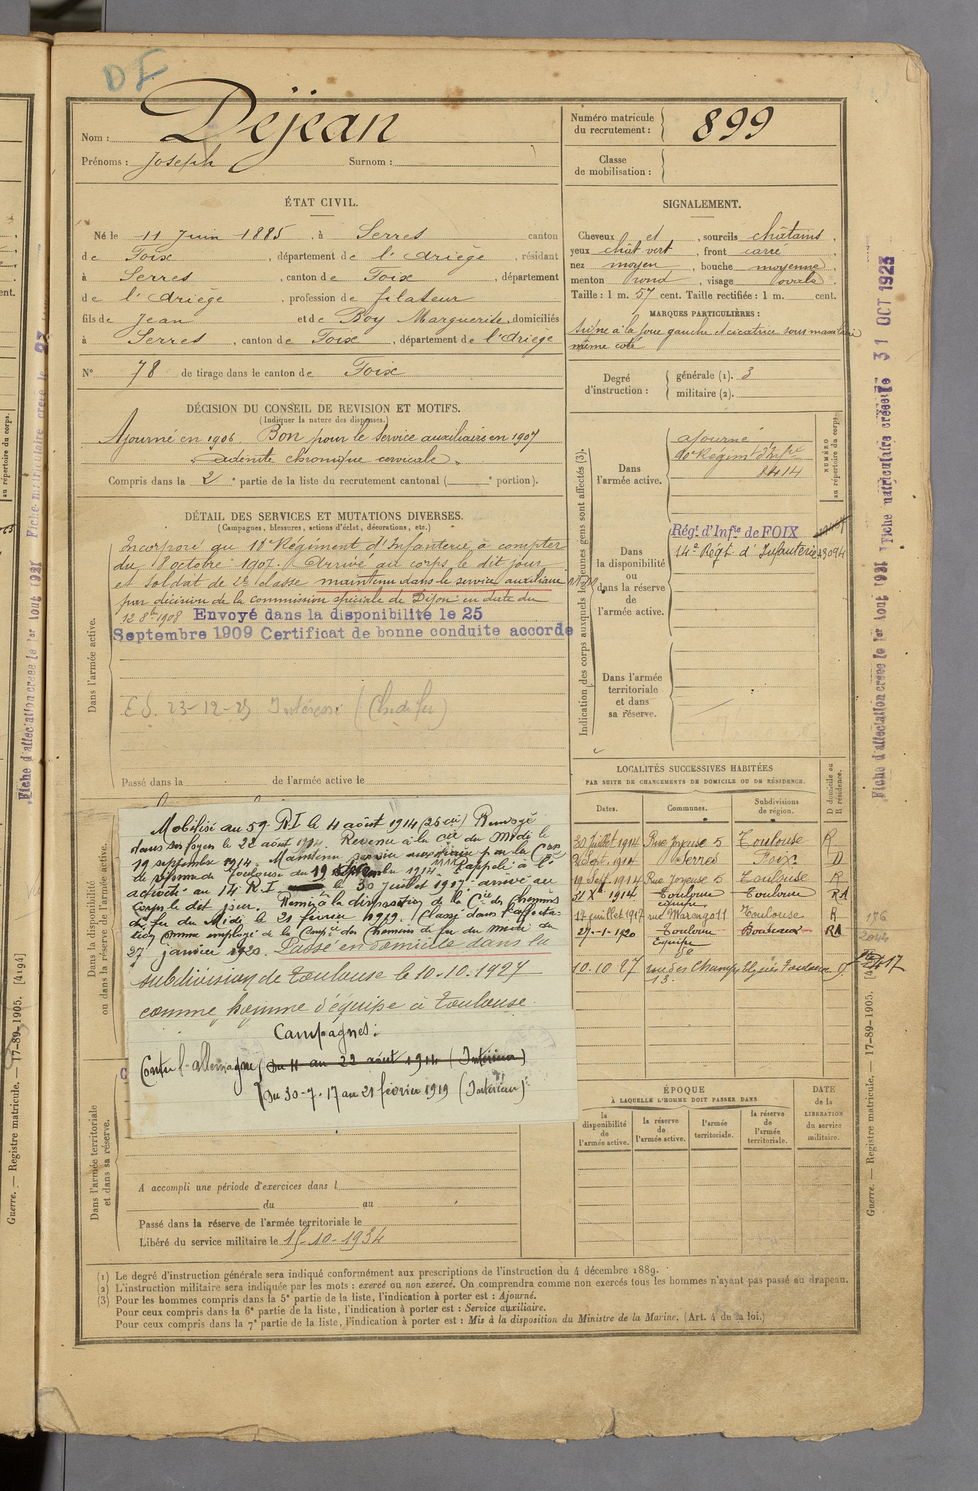 DF
Nom : Déjean
Prénoms : Joseph Surnom :
Numéro matricule du recrutement : 899
Classe de mobilisation :
ÉTAT CIVIL.
Né le 11 Juin 1885, à Serres canton
de Foix, département de l'Ariège, résidant
à Serres, canton de Foix, département
de l'Ariège, profession de filateur
fils de Jean et de Boy Marguerite, domiciliés
à Serres, canton de Foix, département de l'Ariège
N° 78 de tirage dans le canton de Foix
SIGNALEMENT.
Cheveux et, sourcils châtains,
yeux chât. vert, front carré,
nez moyen, bouche moyenne,
menton rond, visage ovale
Taille : 1 m. 57 cent. Taille rectifiée : 1 m. cent.
MARQUES PARTICULIÈRES :
à la joue gauche et cicatrice sous maxillaire
même coté
Degré d'instruction : générale (1). 3
militaire (2).
DÉCISION DU CONSEIL DE REVISION ET MOTIFS.
(Indiquer la nature des dispenses.)
Ajourné en 1906. Bon pour le service auxiliaire en 1907
"adénite chronique cervicale".
Compris dans la 2e partie de la liste du recrutement cantonal ( e portion).
DÉTAIL DES SERVICES ET MUTATIONS DIVERSES.
(Campagnes, blessures, actions d'éclat, décorations, etc.)
Dans l'armée active.
Incorporé au 10e Régiment d'Infanterie à compter
du 8 octobre 1907. Arrivé au corps le dit jour
et soldat de 2e classe maintenu dans le service auxiliaire
par décision de la commission spéciale de Dijon en date du
12 8bre 1908 Envoyé dans la disponibilité le 25
Septembre 1909 Certificat de bonne conduite accordé
E.S. 23-12-29 Intéressé (Ch. de fer)
Passé dans la de l'armée active le
Indication des corps auxquels les jeunes gens sont affectés (3).
NUMÉRO au répertoire du corps.
Dans l'armée active.
ajourné
10e Régiment d'Infie
8414
Dans la disponibilité ou dans la réserve de l'armée active.
Régt d'Infie de FOIX
14e Régt d'Infanterie 23094
Dans l'armée territoriale et dans sa réserve.
Dans la disponibilité ou dans la réserve de l'armée active.
Mobilisé au 59e R.I le 11 août 1914 (26e Cie) Renvoyé
dans ses foyers le 22 août 1914. Revenu à la Cie du Midi le
19 septembre 1914. Maintenu service auxiliaire par la Con
de réforme de Toulouse du 19 septembre 1914. Rappelé à l'
activité au 14 R.I le 30 juillet 1917. arrivé au
corps le dit jour. Remis à la disposition de la Cie des Chemins
de fer du Midi le 21 février 1919. Classé dans l'affecta-
tion comme employé de la Compie des Chemins de fer du Midi du
27 janvier 1920. Passé en domicile dans la
subdivision de Toulouse le 10-10-1927
comme homme d'équipe à Toulouse.
Campagnes :
Contre l'allemagne (du 11 au 22 août 1914 (Intérieur)
(du 30-7-17 au 21 février 1919 (Intérieur)
LOCALITÉS SUCCESSIVES HABITÉES
PAR SUITE DE CHANGEMENTS DE DOMICILE OU DE RÉSIDENCE.
Dates. Communes. Subdivisions de région. D domicile ou R résidence.
30 Juillet 1914 Rue Joyeuse 5 Toulouse R
2 Sept. 1914 Serres Foix D
19 Sept. 1914 Rue Joyeuse 5 Toulouse R
31 X 1914 Toulouse Toulouse RA
équipe
14 juillet 1917 rue Marengo 11 Toulouse R
27-1-1920 Toulouse Bordeaux RA
Equipe
10.10.27 rue des Champs Elysées Toulouse
13
176
2044
2417
ÉPOQUE
À LAQUELLE L'HOMME DOIT PASSER DANS
la disponibilité de l'armée active.
la réserve de l'armée active.
l'armée territoriale.
la réserve de l'armée territoriale.
DATE de la LIBÉRATION du service militaire.
Dans l'armée territoriale et dans sa réserve.
A accompli une période d'exercices dans l
du au
Passé dans la réserve de l'armée territoriale le
Libéré du service militaire le 15-10-1934
(1) Le degré d'instruction générale sera indiqué conformément aux prescriptions de l'instruction du 4 décembre 1889.
(2) L'instruction militaire sera indiquée par les mots : exercé ou non exercé. On comprendra comme non exercés tous les hommes n'ayant pas passé au drapeau.
(3) Pour les hommes compris dans la 5e partie de la liste, l'indication à porter est : Ajourné.
Pour ceux compris dans la 6e partie de la liste, l'indication à porter est : Service auxiliaire.
Pour ceux compris dans la 7e partie de la liste, l'indication à porter est : Mis à la disposition du Ministre de la Marine. (Art. 4 de la loi.)
Fiche d'affectation créée le 1er Août 1921 Fiche matriculaire créée le 31 OCT 1923
Guerre. — Registre matricule. — 17-89-1905.
Guerre. — Registre matricule. — 17-89-1905. [4194]
Fiche d'affectation créée le 1er Août 1921 Fiche matriculaire créée le 23
au répertoire du corps.